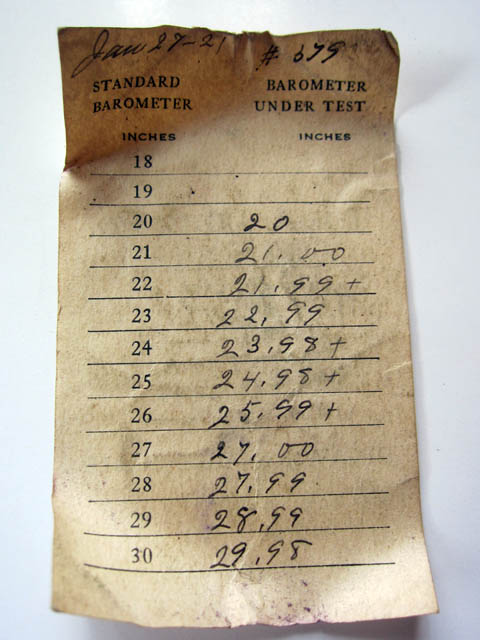 Jan 27-21 # 679
STANDARD BAROMETER
BAROMETER UNDER TEST
INCHES INCHES
18
19
20 20
21 21.00
22 21.99 +
23 22.99
24 23.98 +
25 24.98 +
26 25.99 +
27 27.00
28 27.99
29 28.99
30 29.98